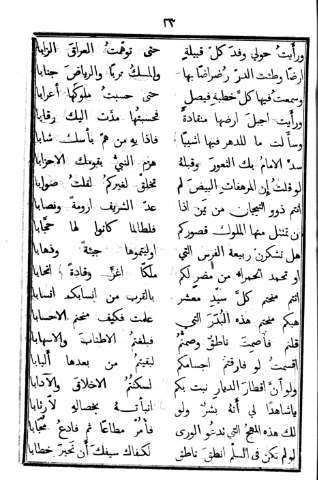 ٢٣
ورأيت حولي وفد كل قبيلة حتى توهمت العراق الزابا
ارضا وطئت الدر رضراضا بها والمسك تربا والرياض جنابا
وسمعت فيها كل خطبة فيصل حتى حسبت ملوكها أعرابا
ورأيت اجبل ارضها منقادة فحسبتها مدت اليك رقابا
وسألت ما للدهر فيها أشيبا فاذا به من هم بأسك شابا
سد الامام بك الثغور وقبله هزم النبي بقومك الاحزابا
لو قلت إن المرهفات البيض لم تخلق لغيركم لقلت صوابا
انتم ذوو التيجان من يمن اذا عد الشريف ارومة ونصابا
ان تمتثل منها الملوك قصوركم فلطالما كانوا لها حجابا
هل تشكرن ربيعة الفرس التي اوليتموها جيئة وذهابا
او تحمد الحمراء من مضر لكم ملكا اغر وقادة انجابا
انتم منحتم كل سيد معشر بالقرب من انسابكم انسابا
هبكم منحتم هذه البدر التي علمت فكيف منحتم الاحسابا
قلتم فأصمت ناطق وصمتم فبلغتم الاطناب والاسهابا
اقسمت لو فارقتم اجسامكم لبقيتم من بعدها ألبابا
ولو أن اقطار الديار نبت بكم لسكنتم الاخلاق والآدابا
يا شاهدا لي أنه بشر ولو انبأته بخصاله لارتابا
لك هذه المهج التي تدعو الورى فأمر مطاعا ثم فادع مجابا
لو لم تكن في السلم انطق ناطق لكفاك سيفك أن تحير خطابا